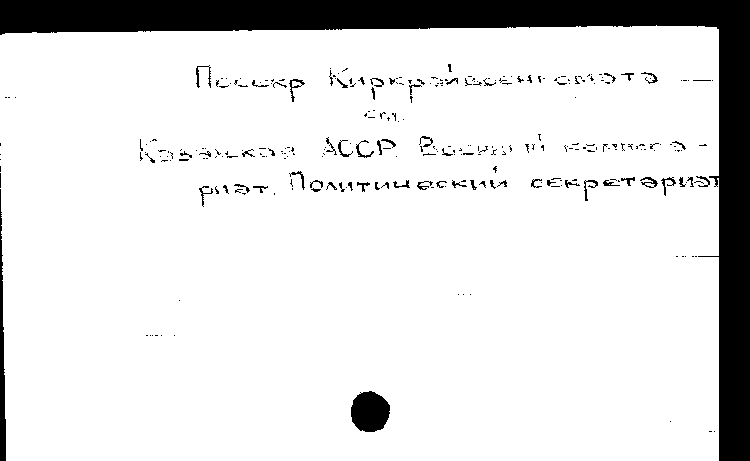 Посекр Киркрайвоенкомата
см.
Казахская АССР. Военный комисса-
риат. Политический секретариат